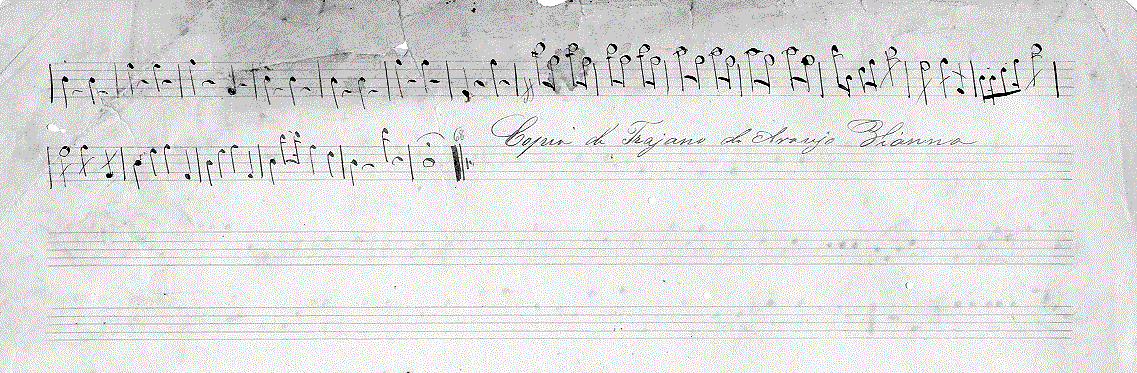 Copia de Trajano de Araujo Vianna